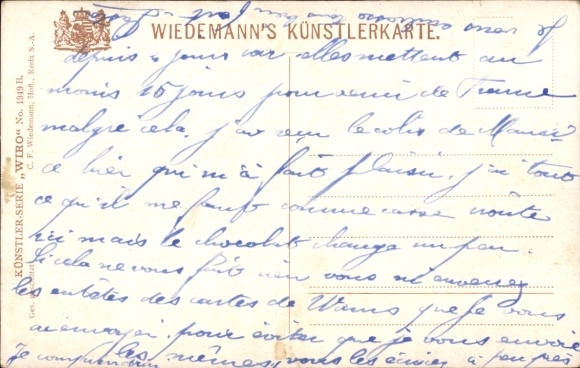 WIEDEMANN'S KÜNSTLERKARTE.
KÜNSTLER-SERIE „WIRO“ No. 1949 B.
C. F. Wiedemann, Hofl., Roda S.-A.
depuis 4 jours car elles mettent au
moins 15 jours pour venir de France
malgré cela, j'ai reçu le colis de
ce hier qui m'a fait plaisir, j'ai tout
ce qu'il me faut comme casse croûte
ici mais le chocolat change un peu.
Si cela ne vous fait rien vous m'enverrez
les entêtes des cartes de que je vous
ai envoyer pour éviter que je vous envoie
les mêmes, vous les écrirez à peu près